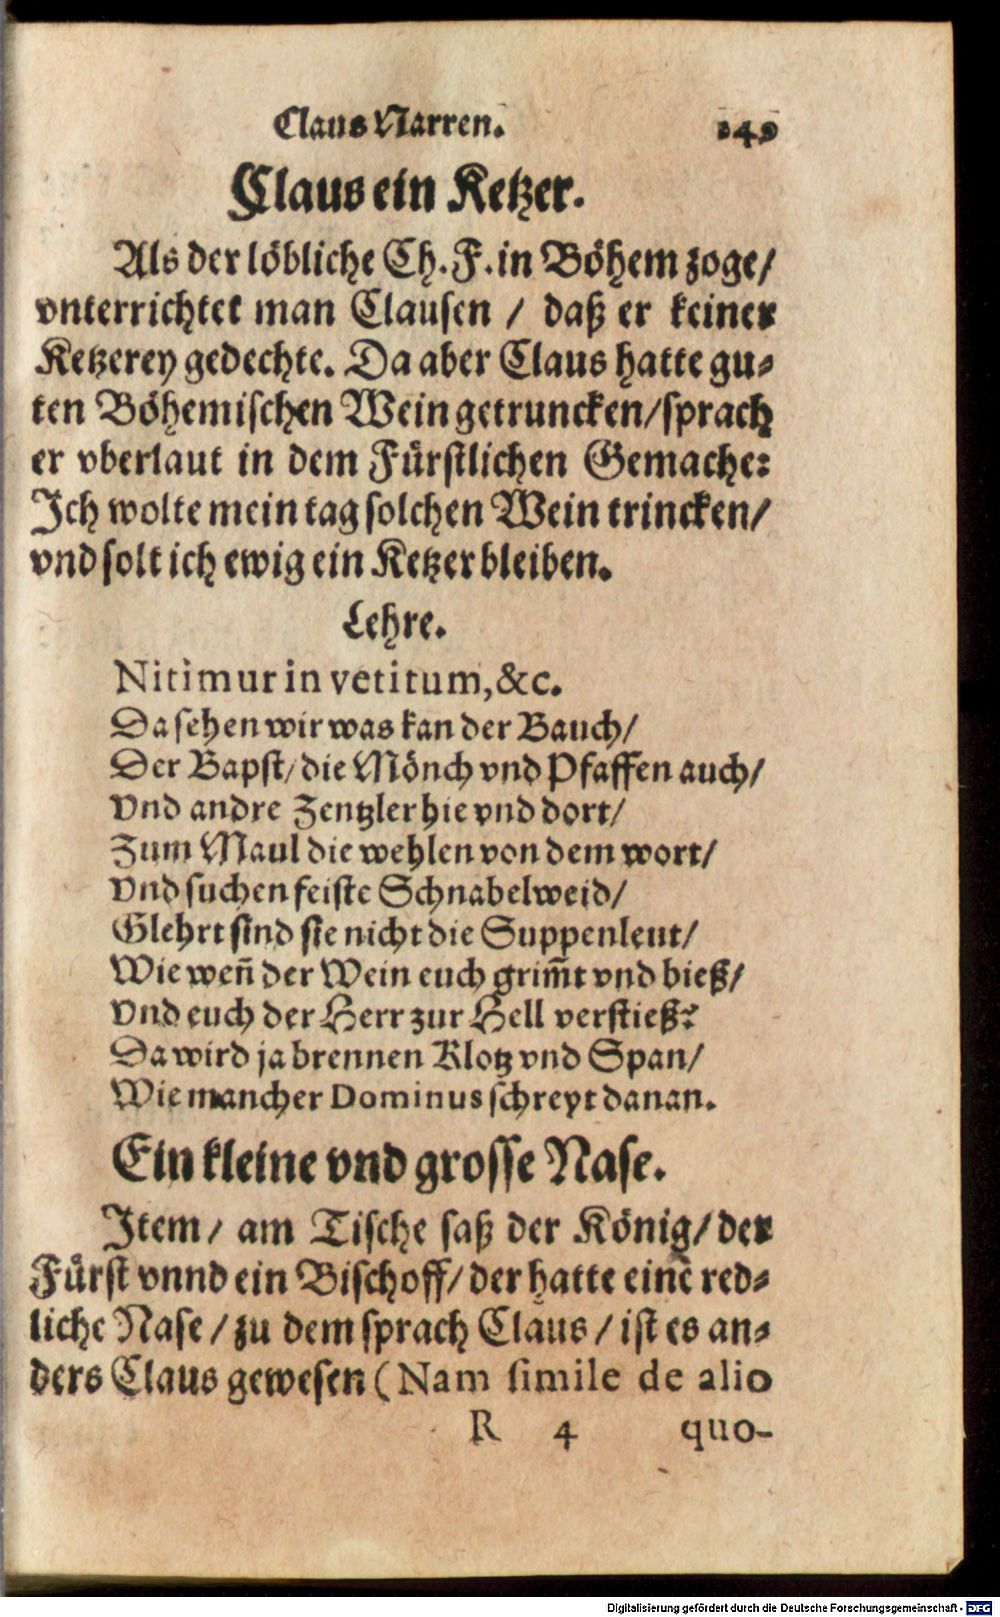 Claus Narren. 149
Claus ein Ketzer.
Als der löbliche Ch. F. in Böhem zoge/
vnterrichtet man Clausen / daß er keiner
Ketzerey gedechte. Da aber Claus hatte gu-
ten Böhemischen Wein getruncken/sprach
er vberlaut in dem Fürstlichen Gemache:
Ich wolte mein tag solchen Wein trincken/
vnd solt ich ewig ein Ketzer bleiben.
Lehre.
Nitimur in vetitum, &c.
Da sehen wir was kan der Bauch/
Der Bapst/ die Mönch vnd Pfaffen auch/
Vnd andre Zentzler hie vnd dort/
Zum Maul die wehlen von dem wort/
Vnd suchen feiste Schnabelweid/
Glehrt sind sie nicht die Suppenleut/
Wie weñ der Wein euch grim̃t vnd bieß/
Vnd euch der Herr zur Hell verstieß?
Da wird ja brennen Klotz vnd Span/
Wie mancher Dominus schreyt danan.
Ein kleine vnd grosse Nase.
Item/ am Tische saß der König/ der
Fürst vnnd ein Bischoff/ der hatte eine red-
liche Nase / zu dem sprach Claus / ist es an-
ders Claus gewesen (Nam simile de alio
R 4 quo-
Digitalisierung gefördert durch die Deutsche Forschungsgemeinschaft - DFG